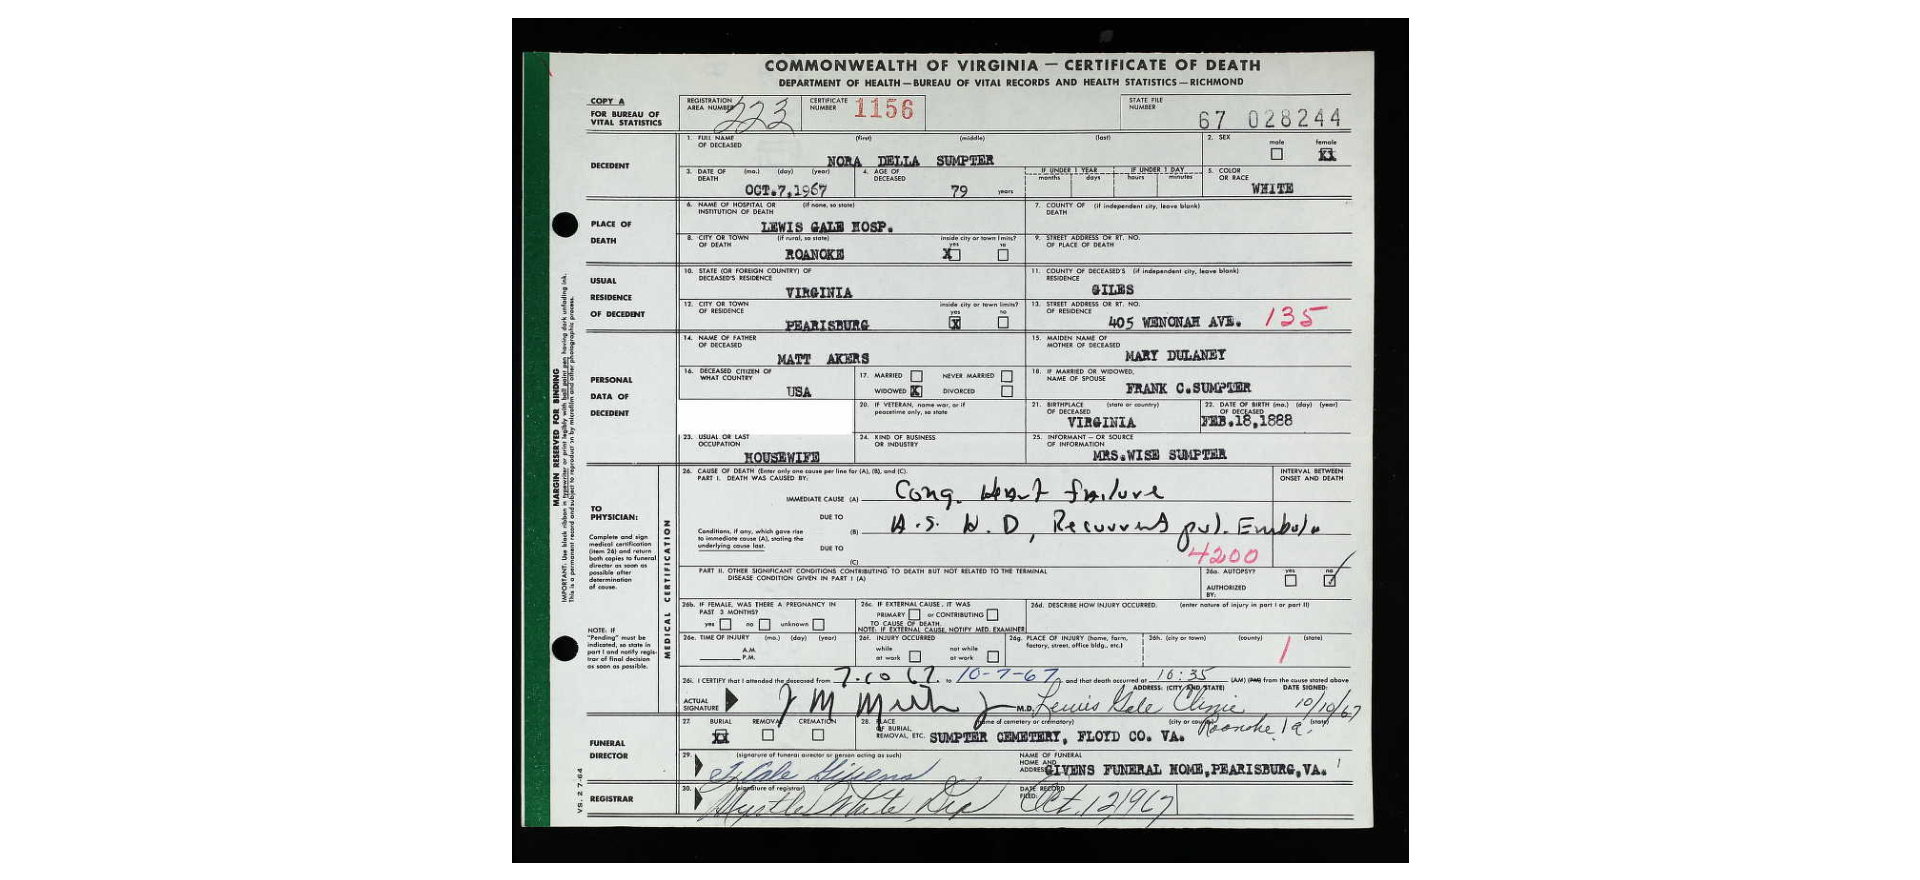 COMMONWEALTH OF VIRGINIA — CERTIFICATE OF DEATH
DEPARTMENT OF HEALTH — BUREAU OF VITAL RECORDS AND HEALTH STATISTICS — RICHMOND
COPY A
FOR BUREAU OF
VITAL STATISTICS
REGISTRATION
AREA NUMBER 223
CERTIFICATE
NUMBER 1156
STATE FILE
NUMBER
67 028244
DECEDENT
1. FULL NAME
OF DECEASED
(first) (middle) (last)
NORA DELLA SUMPTER
2. SEX
male female
XX
3. DATE OF (mo.) (day) (year)
DEATH
OCT.7,1967
4. AGE OF
DECEASED
79 years
IF UNDER 1 YEAR
months days
IF UNDER 1 DAY
hours minutes
5. COLOR
OR RACE
WHITE
PLACE OF
DEATH
6. NAME OF HOSPITAL OR (if none, so state)
INSTITUTION OF DEATH
LEWIS GALE HOSP.
7. COUNTY OF (if independent city, leave blank)
DEATH
8. CITY OR TOWN (if rural, so state)
OF DEATH
ROANOKE
inside city or town limits?
yes no
X
9. STREET ADDRESS OR RT. NO.
OF PLACE OF DEATH
USUAL
RESIDENCE
OF DECEDENT
10. STATE (OR FOREIGN COUNTRY) OF
DECEASED'S RESIDENCE
VIRGINIA
11. COUNTY OF DECEASED'S (if independent city, leave blank)
RESIDENCE
GILES
12. CITY OR TOWN
OF RESIDENCE
PEARISBURG
inside city or town limits?
yes no
X
13. STREET ADDRESS OR RT. NO.
OF RESIDENCE
405 WENONAH AVE. 135
PERSONAL
DATA OF
DECEDENT
14. NAME OF FATHER
OF DECEASED
MATT AKERS
15. MAIDEN NAME OF
MOTHER OF DECEASED
MARY DULANEY
16. DECEASED CITIZEN OF
WHAT COUNTRY
USA
17. MARRIED NEVER MARRIED
WIDOWED X DIVORCED
18. IF MARRIED OR WIDOWED,
NAME OF SPOUSE
FRANK C.SUMPTER
20. IF VETERAN, name war, or if
peacetime only, so state
21. BIRTHPLACE (state or country)
OF DECEASED
VIRGINIA
22. DATE OF BIRTH (mo.) (day) (year)
OF DECEASED
FEB.18,1888
23. USUAL OR LAST
OCCUPATION
HOUSEWIFE
24. KIND OF BUSINESS
OR INDUSTRY
25. INFORMANT — OR SOURCE
OF INFORMATION
MRS.WISE SUMPTER
MARGIN RESERVED FOR BINDING
MEDICAL CERTIFICATION
TO
PHYSICIAN:
Complete and sign
medical certification
(item 26) and return
both copies to funeral
director as soon as
possible after
determination
of cause.
NOTE: IF
"Pending" must be
indicated, so state in
part I and notify regis-
trar of final decision
as soon as possible.
26. CAUSE OF DEATH (Enter only one cause per line for (A), (B), and (C).
PART I. DEATH WAS CAUSED BY:
INTERVAL BETWEEN
ONSET AND DEATH
IMMEDIATE CAUSE (A) Cong. Heart failure
DUE TO
(B) A.S. H.D, Recurrent pul. Emboli
Conditions, if any, which gave rise
to immediate cause (A), stating the
underlying cause last.
DUE TO
(C)
4200
PART II. OTHER SIGNIFICANT CONDITIONS CONTRIBUTING TO DEATH BUT NOT RELATED TO THE TERMINAL
DISEASE CONDITION GIVEN IN PART I (A)
26a. AUTOPSY? yes no
AUTHORIZED
BY:
26b. IF FEMALE, WAS THERE A PREGNANCY IN
PAST 3 MONTHS?
yes no unknown
26c. IF EXTERNAL CAUSE, IT WAS
PRIMARY or CONTRIBUTING
TO CAUSE OF DEATH.
NOTE: IF EXTERNAL CAUSE, NOTIFY MED. EXAMINER
26d. DESCRIBE HOW INJURY OCCURRED. (enter nature of injury in part I or part II)
26e. TIME OF INJURY (mo.) (day) (year)
A.M.
P.M.
26f. INJURY OCCURRED
while at work not while at work
26g. PLACE OF INJURY (home, farm,
factory, street, office bldg., etc.)
26h. (city or town) (county) (state)
1
26i. I CERTIFY that I attended the deceased from 7.10 67. to 10-7-67, and that death occurred at 10:35 (AM) (PM) from the cause stated above
ACTUAL
SIGNATURE
M.D.
ADDRESS: (CITY AND STATE)
Lewis Gale Clinic
Roanoke
DATE SIGNED:
10/10/67
FUNERAL
DIRECTOR
27. BURIAL REMOVAL CREMATION
XX
28. PLACE
OF BURIAL,
REMOVAL, ETC.
(name of cemetery or crematory) (city or county) (state)
SUMPTER CEMETERY, FLOYD CO. VA.
29. (signature of funeral director or person acting as such)
Givens
NAME OF FUNERAL
HOME AND
ADDRESS
GIVENS FUNERAL HOME,PEARISBURG,VA.
REGISTRAR
30. (signature of registrar)
Myrtle White Dep
DATE RECORD
FILED:
Oct. 12, 1967
VS. 2 7-64